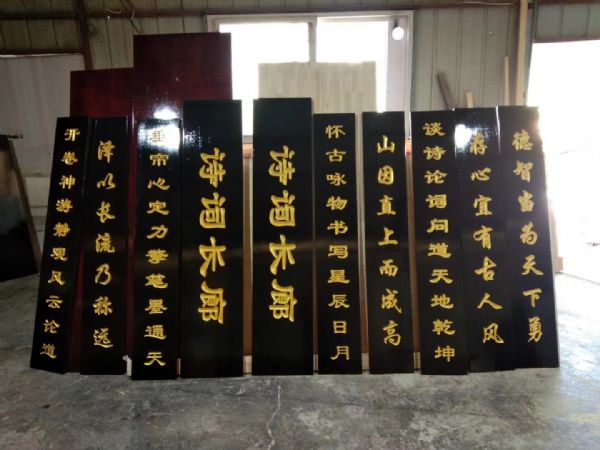 德智当为天下勇
存心宜有古人风
谈诗论词问道天地乾坤
山因直上而成高
怀古咏物书写星辰日月
诗词长廊
诗词长廊
垂帘心定力擎笔墨通天
泽以长流乃称远
开卷神游静观风云论道